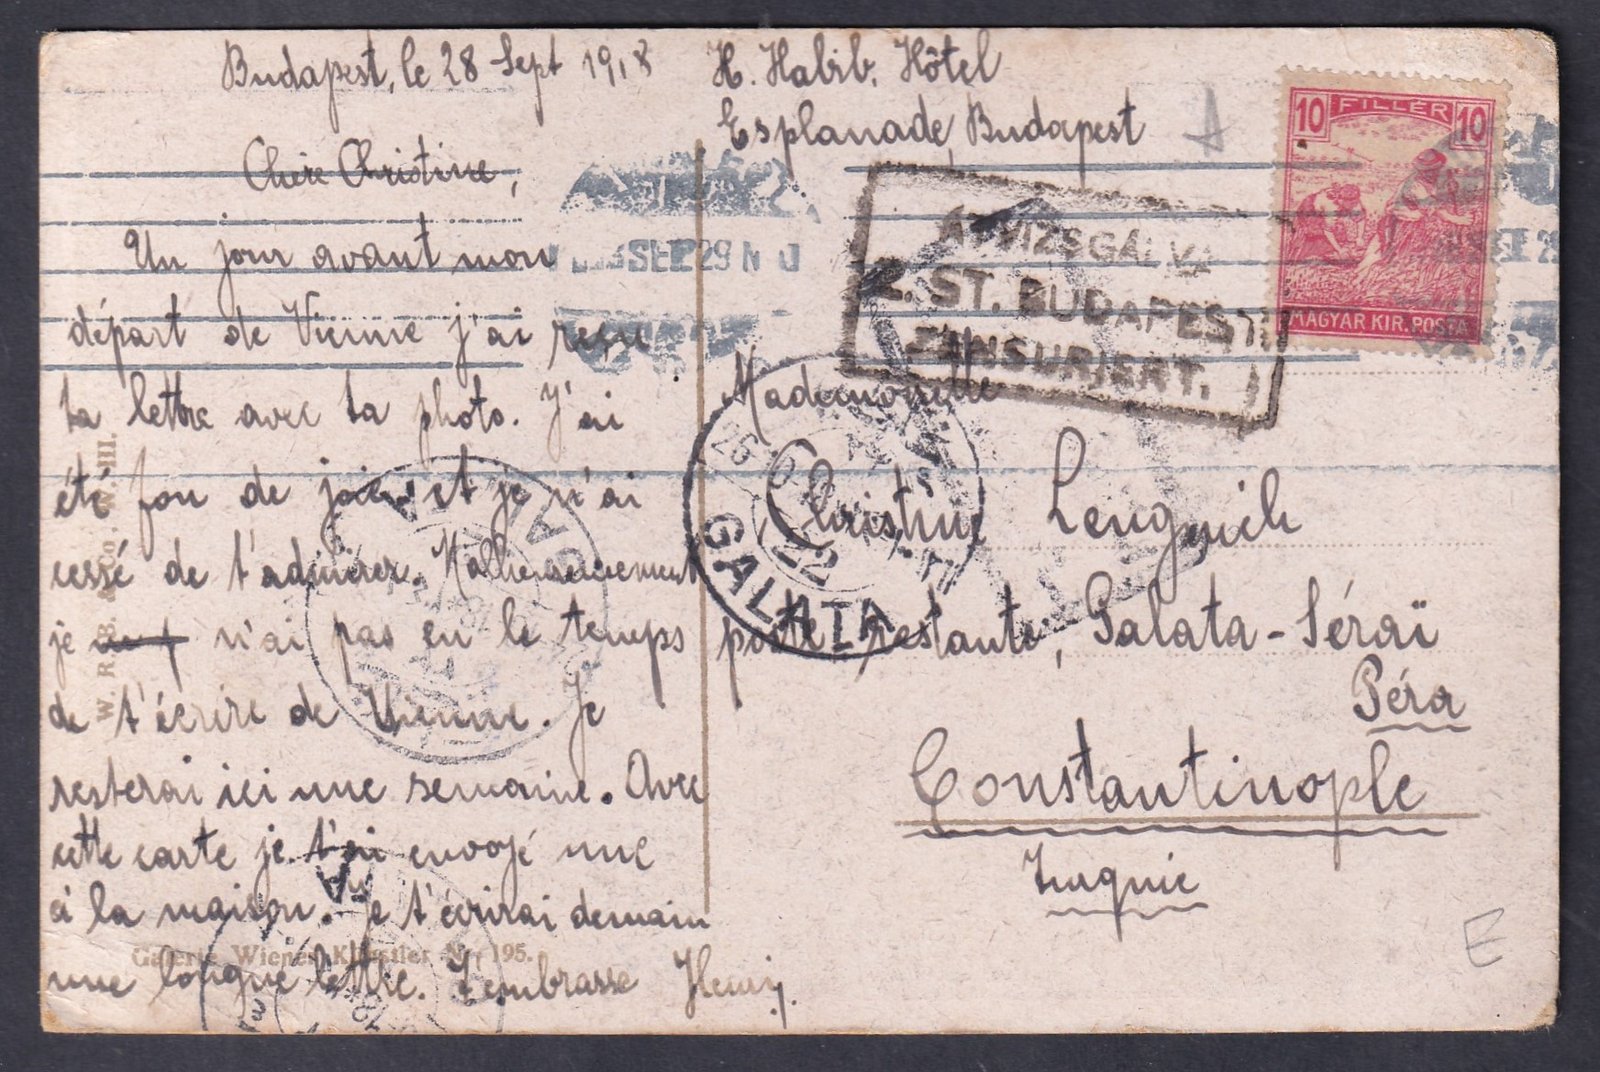 Budapest, le 28 Sept 1918
H. Habib. Hôtel
Esplanade, Budapest
Chère Christine,
Un jour avant mon
départ de Vienne j'ai reçu
ta lettre avec ta photo. J'ai
été fou de joie et je n'ai
cessé de t'admirer. Malheureusement
je n'ai pas eu le temps
de t'écrire de Vienne. Je
resterai ici une semaine. Avec
cette carte je t'ai envoyé une
à la maison. Je t'écrirai demain
une longue lettre. J'embrasse Henry.
10 FILLÉR 10
MAGYAR KIR. POSTA
SEP 29
ÁTVIZSGÁLVA
2. ST. BUDAPEST
ZENSURIERT.
Mademoiselle
Christine
poste restante, Galata-Séraï
Péra
Constantinople
Turquie
GALATA
22
W. R. B. & Co. W. III.
Galerie Wiener Künstler Nr. 195.
E